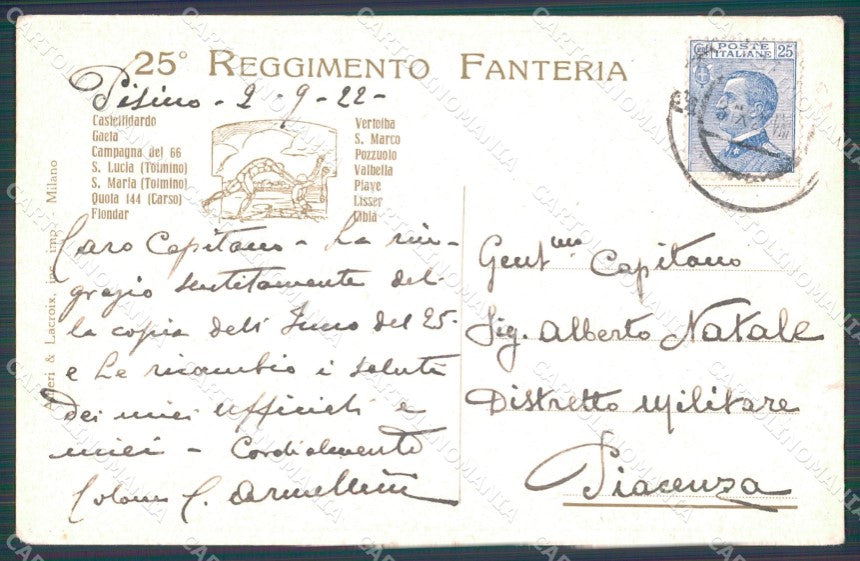 25° REGGIMENTO FANTERIA
Pisino - 2 - 9 - 22 -
Castelfidardo
Gaeta
Campagna del 66
S. Lucia (Tolmino)
S. Maria (Tolmino)
Quota 144 (Carso)
Flondar
Vertoiba
S. Marco
Pozzuolo
Valbella
Piave
Lisser
Libia
Alfieri & Lacroix, inc. imp. Milano
POSTE ITALIANE 25
Caro Capitano - La rin-
grazio sentitamente del-
la copia dell' Inno del 25.
e Le ricambio i saluti
dei miei ufficiali e
miei - Cordialmente
Armellini
Gent.mo Capitano
Sig. Alberto Natale
Distretto Militare
Piacenza
CARTOLINOMANIA